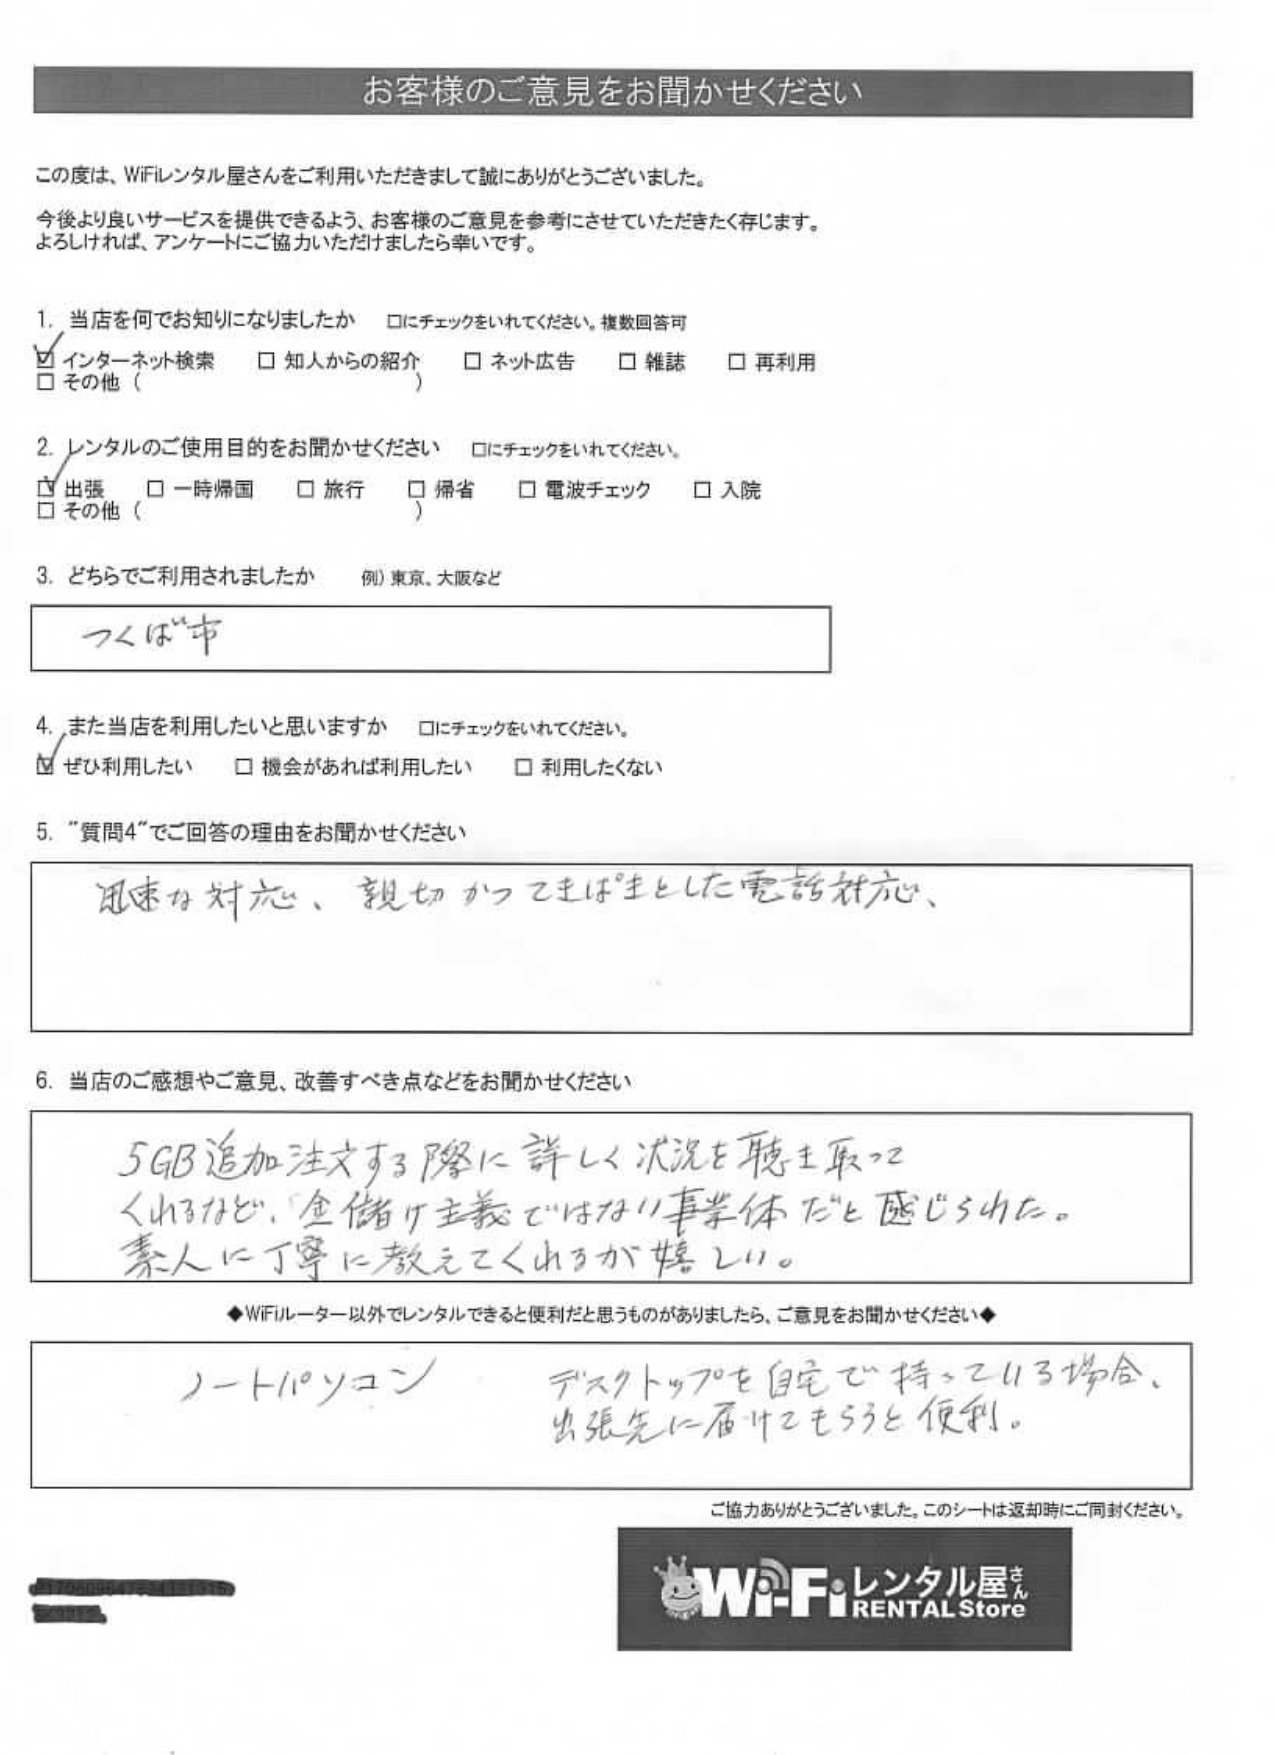 お客様のご意見をお聞かせください
この度は、WiFiレンタル屋さんをご利用いただきまして誠にありがとうございました。
今後より良いサービスを提供できるよう、お客様のご意見を参考にさせていただきたく存じます。
よろしければ、アンケートにご協力いただけましたら幸いです。
1. 当店を何でお知りになりましたか □にチェックをいれてください。複数回答可
☑ インターネット検索 □ 知人からの紹介 □ ネット広告 □ 雑誌 □ 再利用
□ その他 ( )
2. レンタルのご使用目的をお聞かせください □にチェックをいれてください。
☑ 出張 □ 一時帰国 □ 旅行 □ 帰省 □ 電波チェック □ 入院
□ その他 ( )
3. どちらでご利用されましたか 例) 東京、大阪など
つくば市
4. また当店を利用したいと思いますか □にチェックをいれてください。
☑ ぜひ利用したい □ 機会があれば利用したい □ 利用したくない
5. "質問4"でご回答の理由をお聞かせください
迅速な対応、親切かつてきぱきとした電話対応、
6. 当店のご感想やご意見、改善すべき点などをお聞かせください
5GB追加注文する際に詳しく状況を聴き取って
くれるなど、金儲け主義ではない事業体だと感じられた。
素人に丁寧に教えてくれるが嬉しい。
◆WiFiルーター以外でレンタルできると便利だと思うものがありましたら、ご意見をお聞かせください◆
ノートパソコン デスクトップを自宅で持っている場合、
出張先に届けてもらうと便利。
ご協力ありがとうございました。このシートは返却時にご同封ください。
Wi-Fiレンタル屋さん
RENTAL Store